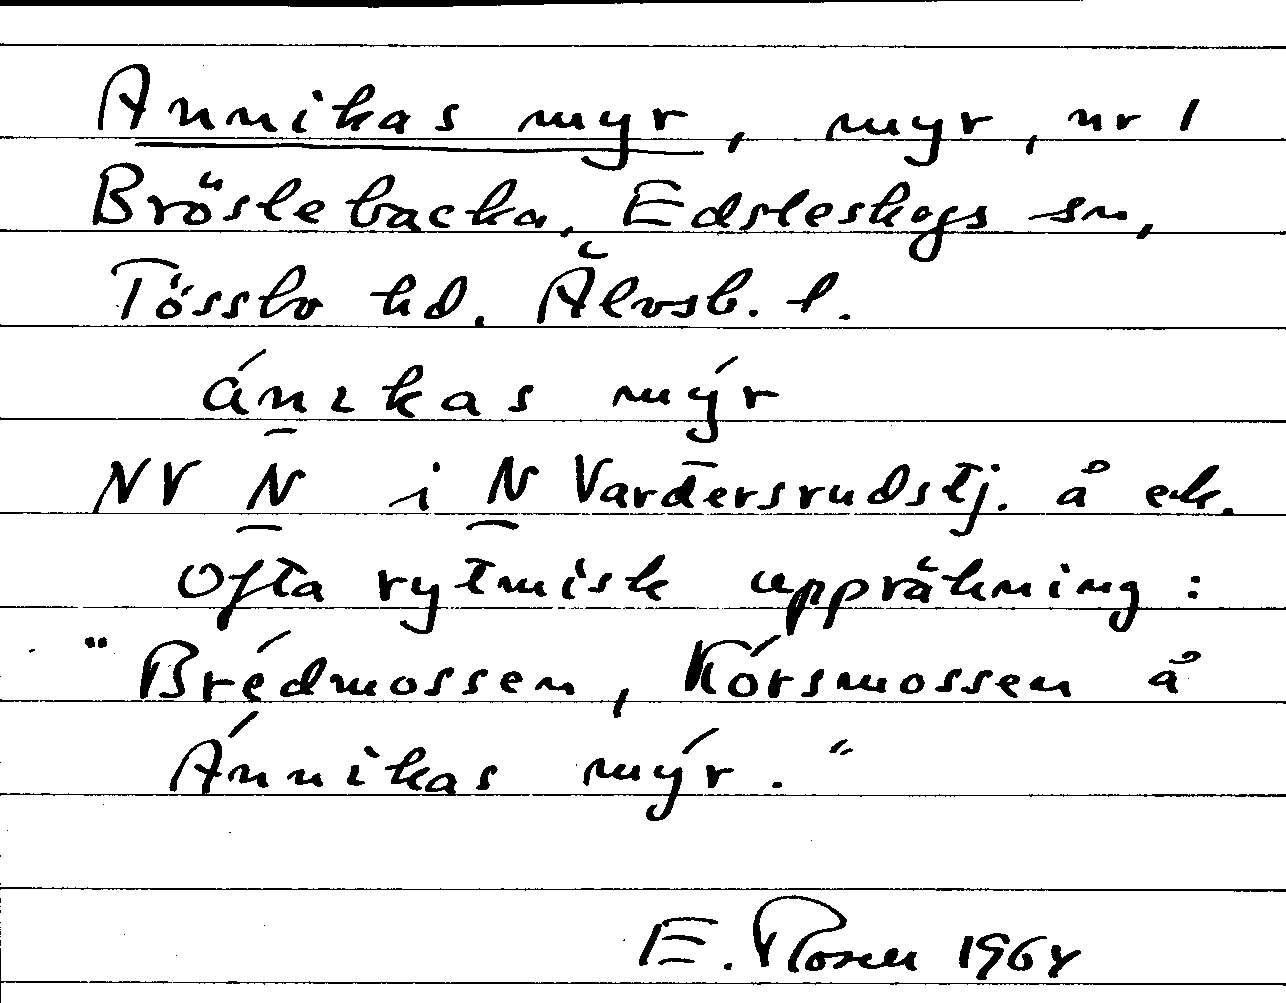 Annikas myr, myr, nr 1
Bröslebacka, Edsleskogs sn,
Tössbo hd. Älvsb. l.
ánıkas mýr
NV N i N Vardersrudstj. å ek.
Ofta rytmisk uppräkning:
"Brédmossen, Kórsmossen å
Ánnikas mýr."
E. Rosen 1968